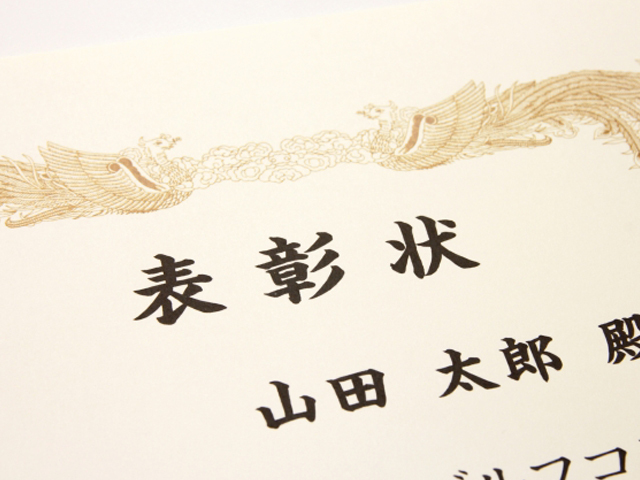 表彰状
山田 太郎 殿
ゴルフコ